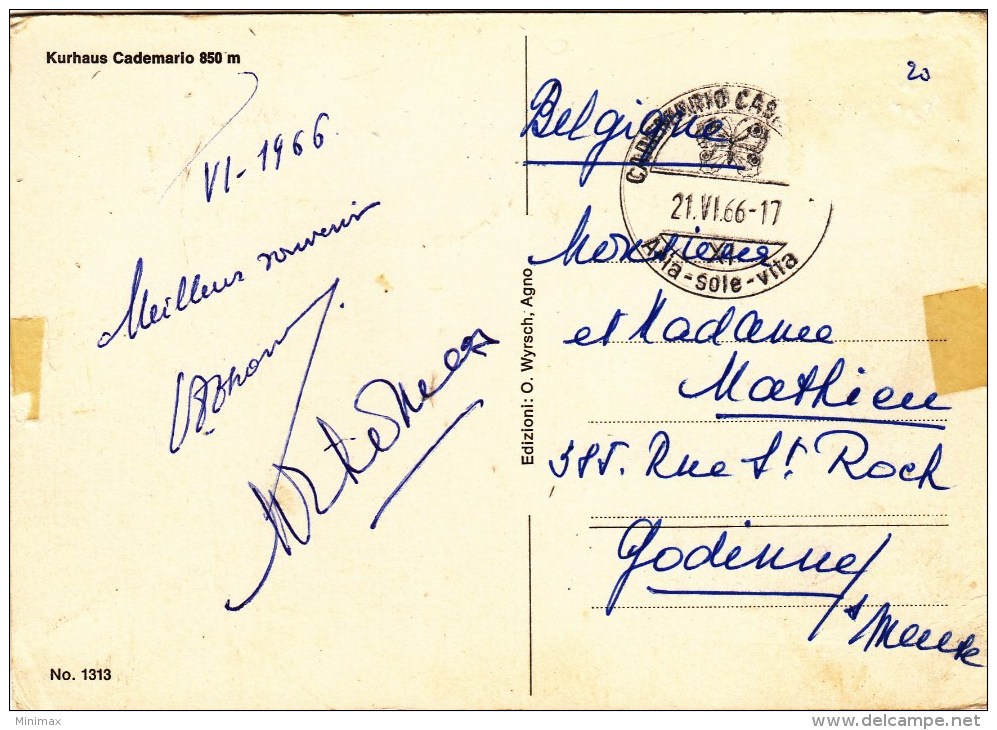 Kurhaus Cademario 850 m
VI-1966
Meilleur souvenir
No. 1313
Edizioni: O. Wyrsch, Agno
20
CADEMARIO CAS
21.VI.66-17
Aria-sole-vita
Belgique
Monsieur
et Madame
Mathieu
385. Rue St. Roch
Godinne/
s/Meuse
Minimax
www.delcampe.net